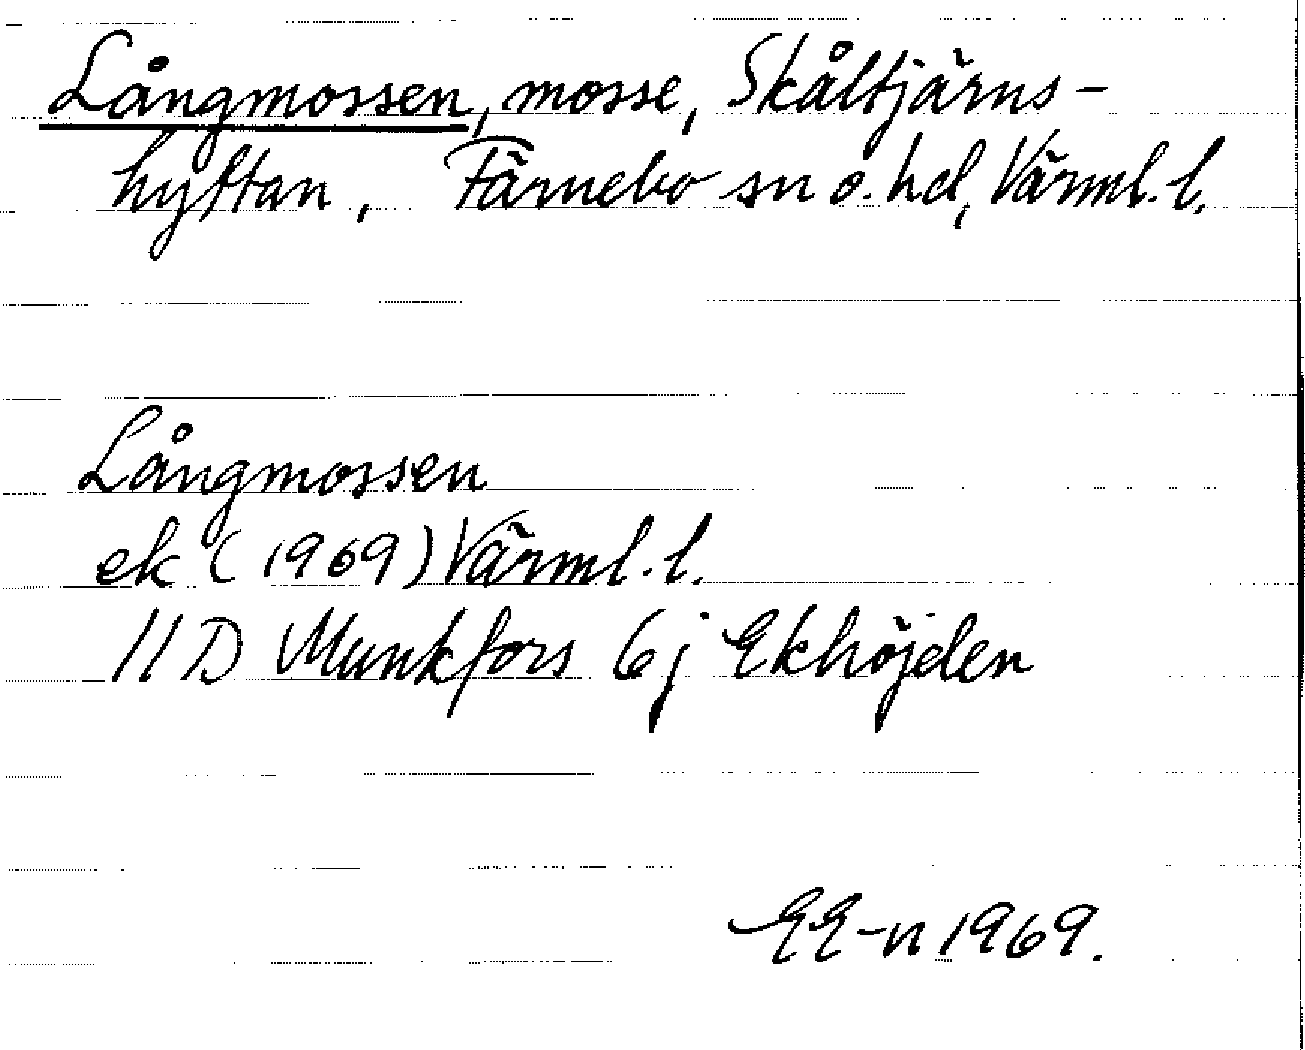 Långmossen, mosse, Skåltjärns-
hyttan, Färnebo sn o. hd, Värml. l.
Långmossen
ek (1969) Värml. l.
11 D Munkfors 6 j Ekhöjden
EE-n 1969.